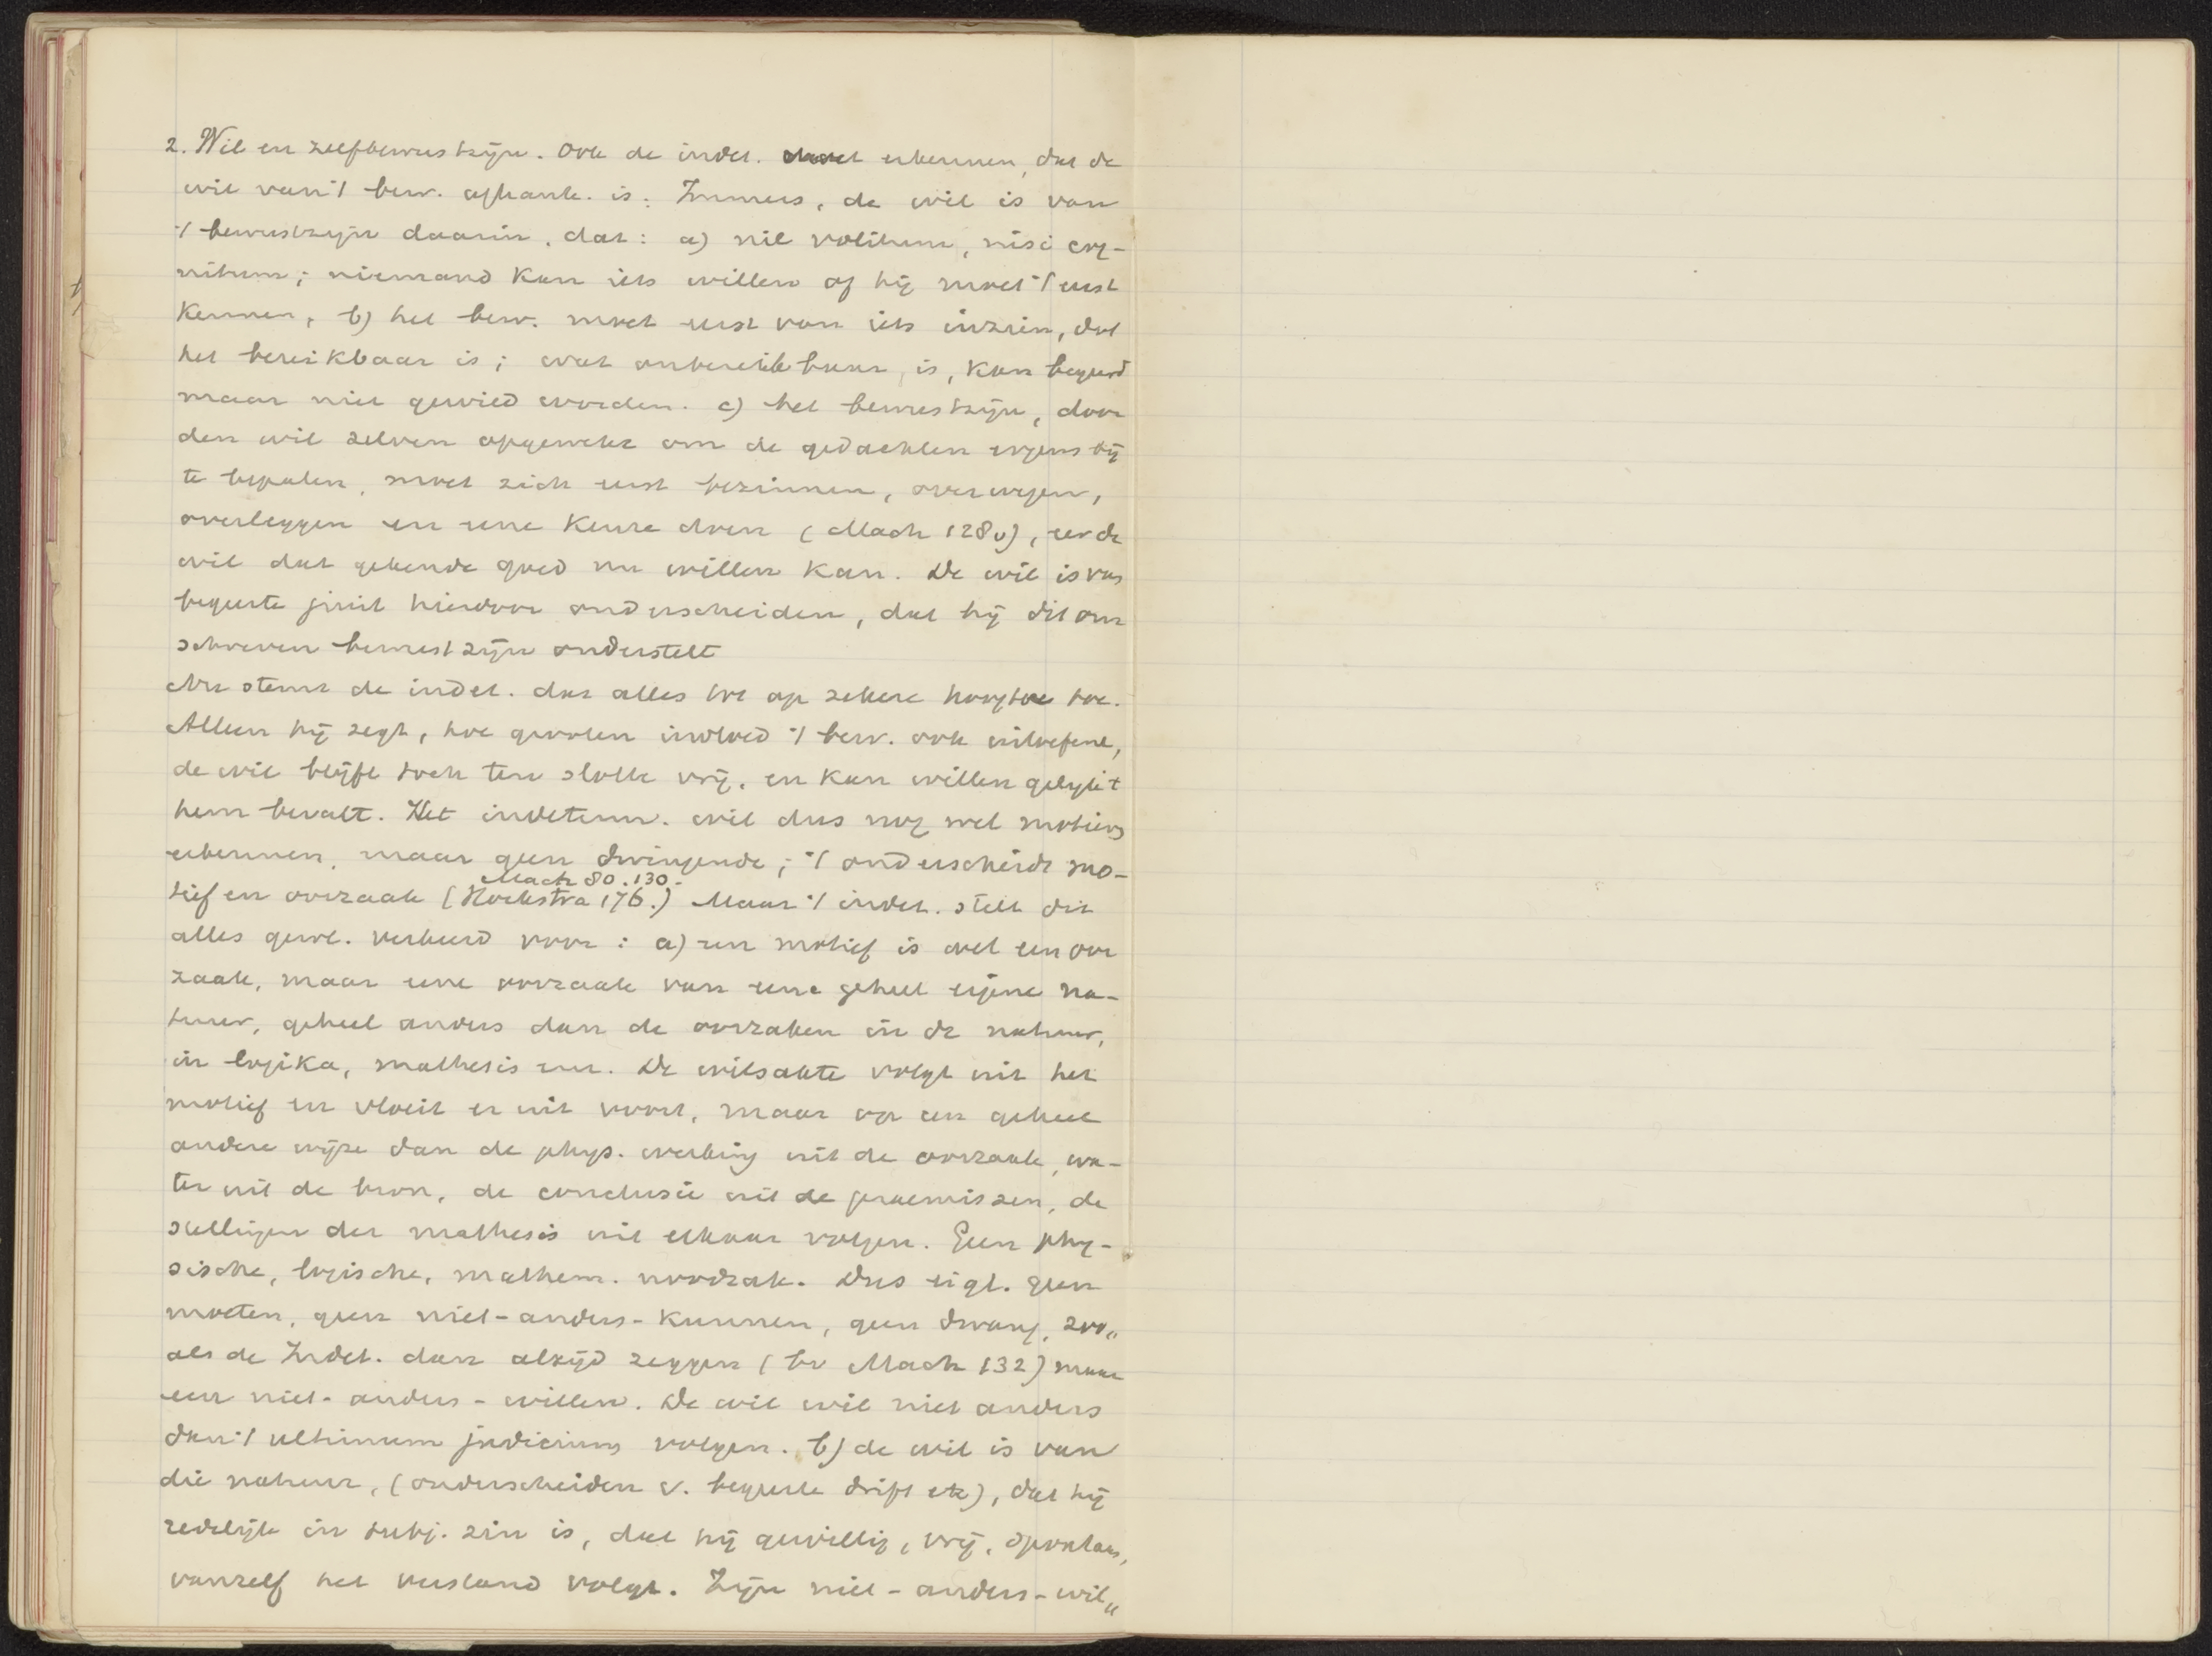 2. Wil en zelfbewustzijn. Ook de indet. moet erkennen, dat de
wil van 't bew. afhank. is: Immers, de wil is van
't bewustzijn daarin, dat: a) nil volitum, nisi cog-
nitum; niemand kan iets willen of hij moet 't eerst
kennen, b) het bew. moet eerst van iets inzien, dat
het bereikbaar is; wat onbereikbaar is, kan begeerd
maar niet gewild worden. c) het bewustzijn, door
den wil zelven opgewekt om de gedachten ergens bij
te bepalen, moet zich eerst bezinnen, overwegen,
overleggen en eene keuze doen (Mach 128v), eer de
wil dat gekende goed nu willen kan. De wil is van
begeerte juist hierdoor onderscheiden, dat hij dit om
schreven bewustzijn onderstelt
Nu stemt de indet. dat alles tot op zekere hoogte toe.
Alleen hij zegt, hoe grooten invloed 't bew. ook uitoefent,
de wil blijft toch ten slotte vrij, en kan willen gelijk 't
hem bevalt. Het indeterm. wil dus nog wel motieven
erkennen, maar geen dwingende; 't onderscheidt mo-
Mach 80.130.
tief en oorzaak (Hoekstra 176.) Maar 't indet. stelt dit
alles gewl. verkeerd voor: a) een motief is wel een oor
zaak, maar eene oorzaak van eene geheel eigene na-
tuur, geheel anders dan de oorzaken in de natuur,
in logika, mathesis enz. De wilsakte volgt uit het
motief en vloeit er uit voort, maar op een geheel
andere wijze dan de phys. werking uit de oorzaak, wa-
ter uit de bron, de conclusie uit de praemissen, de
stellingen der mathesis uit elkaar volgen. Geen phy-
sische, logische, mathem. noodzak. Dus eigl. geen
moeten, geen niet-anders-kunnen, geen dwang, zoo„
als de Indet. dan altijd zeggen (bv Mach 132) maar
een niet-anders-willen. De wil wil niet anders
dan 't ultimum judicium volgen. b) de wil is van
die natuur, (onderscheiden v. begeerte drift etc), dat hij
redelijk in subj. zin is, dat hij gewillig, vrij, spontaan,
vanzelf het verstand volgt. Zijn niet-anders-wil„